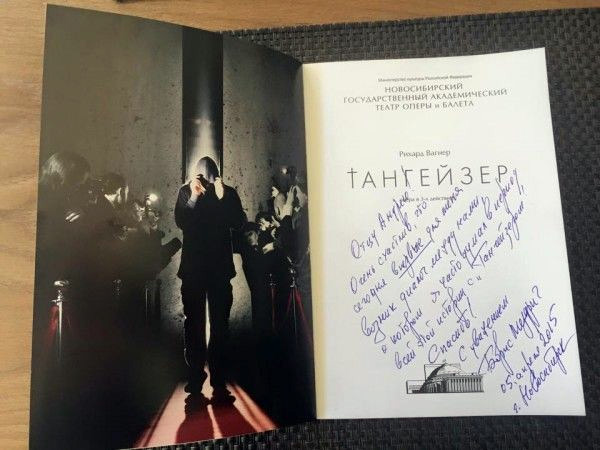 Министерство культуры Российской Федерации
НОВОСИБИРСКИЙ
ГОСУДАРСТВЕННЫЙ АКАДЕМИЧЕСКИЙ
ТЕАТР ОПЕРЫ и БАЛЕТА
Рихард Вагнер
ТАНГЕЙЗЕР
Опера в 3-х действиях
Отцу Андрею!
Очень счастлив, что
сегодня впервые для меня
возник диалог между нами,
о котором я часто думал в период
всей этой истории с "Тангейзером".
Спасибо!
С уважением
Борис
05. апреля 2015
г. Новосибирск